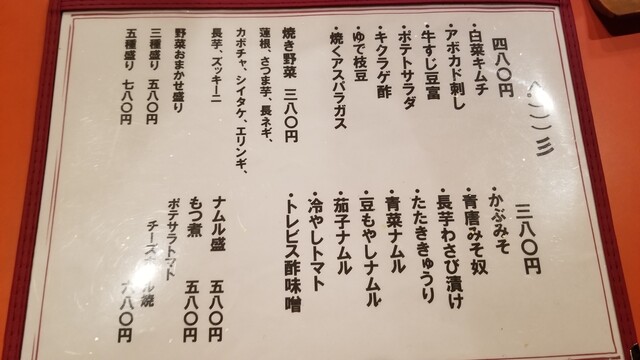 四八〇円
・白菜キムチ
・アボカド刺し
・牛すじ豆富
・ポテトサラダ
・キクラゲ酢
・ゆで枝豆
・焼くアスパラガス
焼き野菜 三八〇円
蓮根、さつま芋、長ネギ、
カボチャ、シイタケ、エリンギ、
長芋、ズッキーニ
野菜おまかせ盛り
三種盛り 五八〇円
五種盛り 七八〇円
三八〇円
・かぶみそ
・青唐みそ奴
・長芋わさび漬け
・たたききゅうり
・青菜ナムル
・豆もやしナムル
・茄子ナムル
・冷やしトマト
・トレビス酢味噌
ナムル盛 五八〇円
もつ煮 五八〇円
ポテサラトマト
チーズ 焼
六八〇円